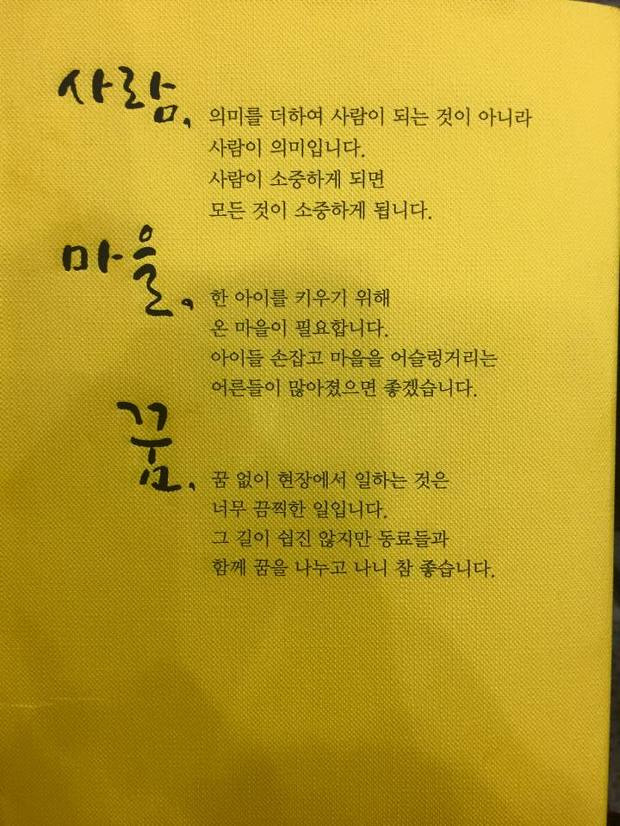 사람,
의미를 더하여 사람이 되는 것이 아니라
사람이 의미입니다.
사람이 소중하게 되면
모든 것이 소중하게 됩니다.
마을,
한 아이를 키우기 위해
온 마을이 필요합니다.
아이들 손잡고 마을을 어슬렁거리는
어른들이 많아졌으면 좋겠습니다.
꿈,
꿈 없이 현장에서 일하는 것은
너무 끔찍한 일입니다.
그 길이 쉽진 않지만 동료들과
함께 꿈을 나누고 나니 참 좋습니다.